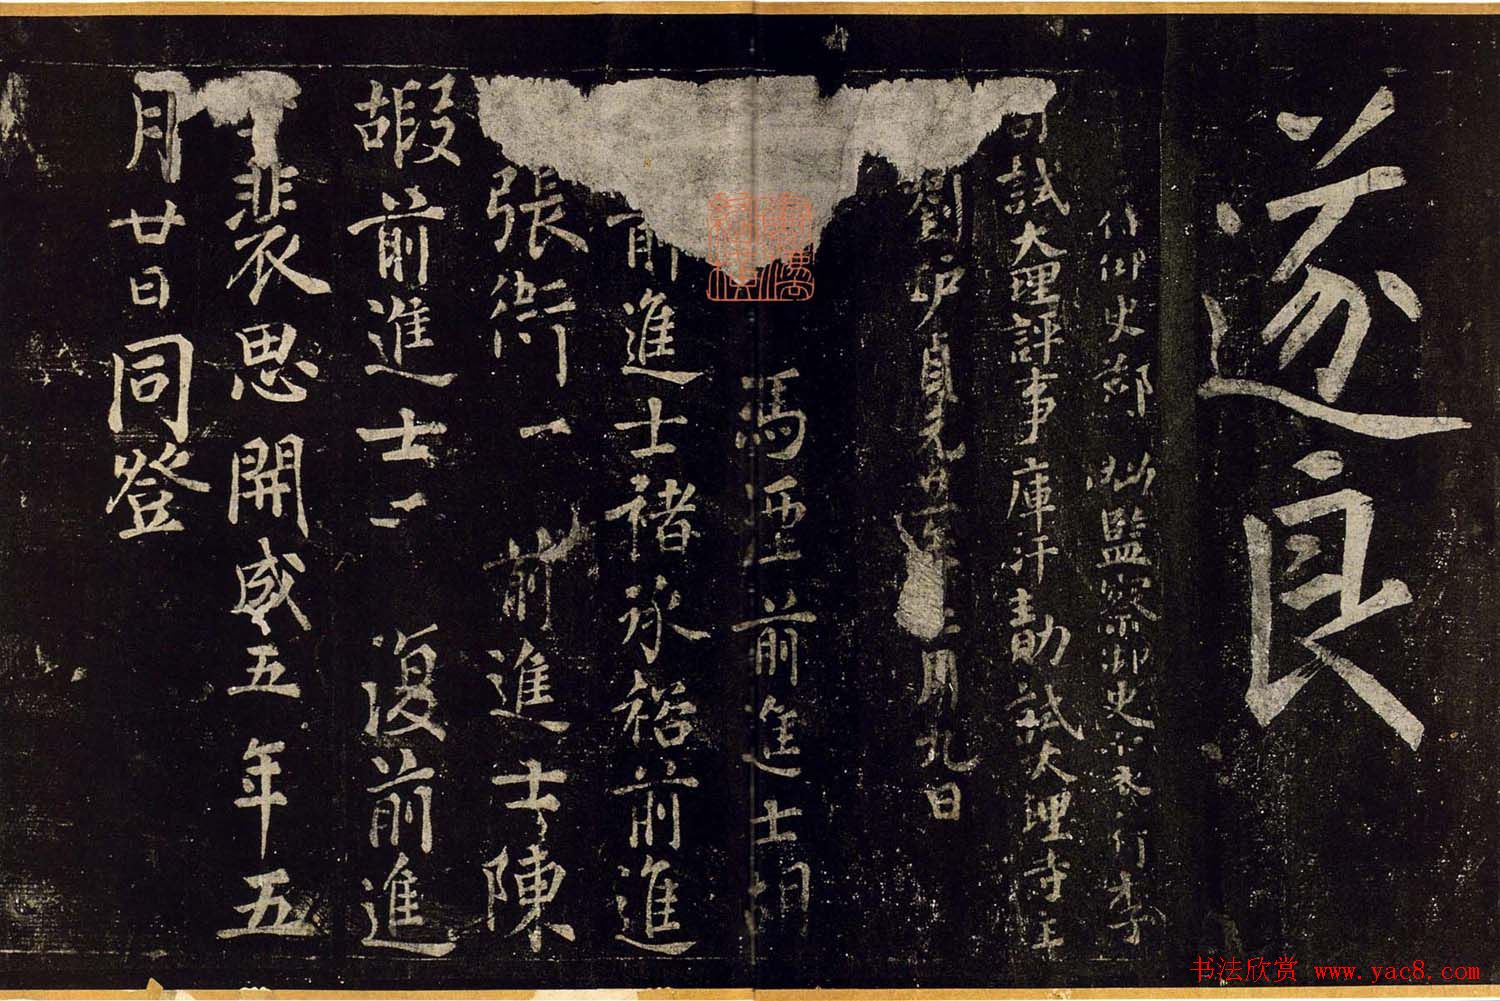 遂良
侍御史鄭 監察御史 行李
司試大理評事庫汗勣試大理寺主
劉 貞元 月九日
馮 前進士胡
前進士褚承裕前進
張衜一 前進士陳
嘏前進士 復前進
士裴思開成五年五
月廿日同登
书法欣赏 www.yac8.com